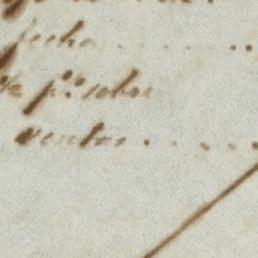 fecha . . . . . .
½ p.º sobre
ventas . . . . .